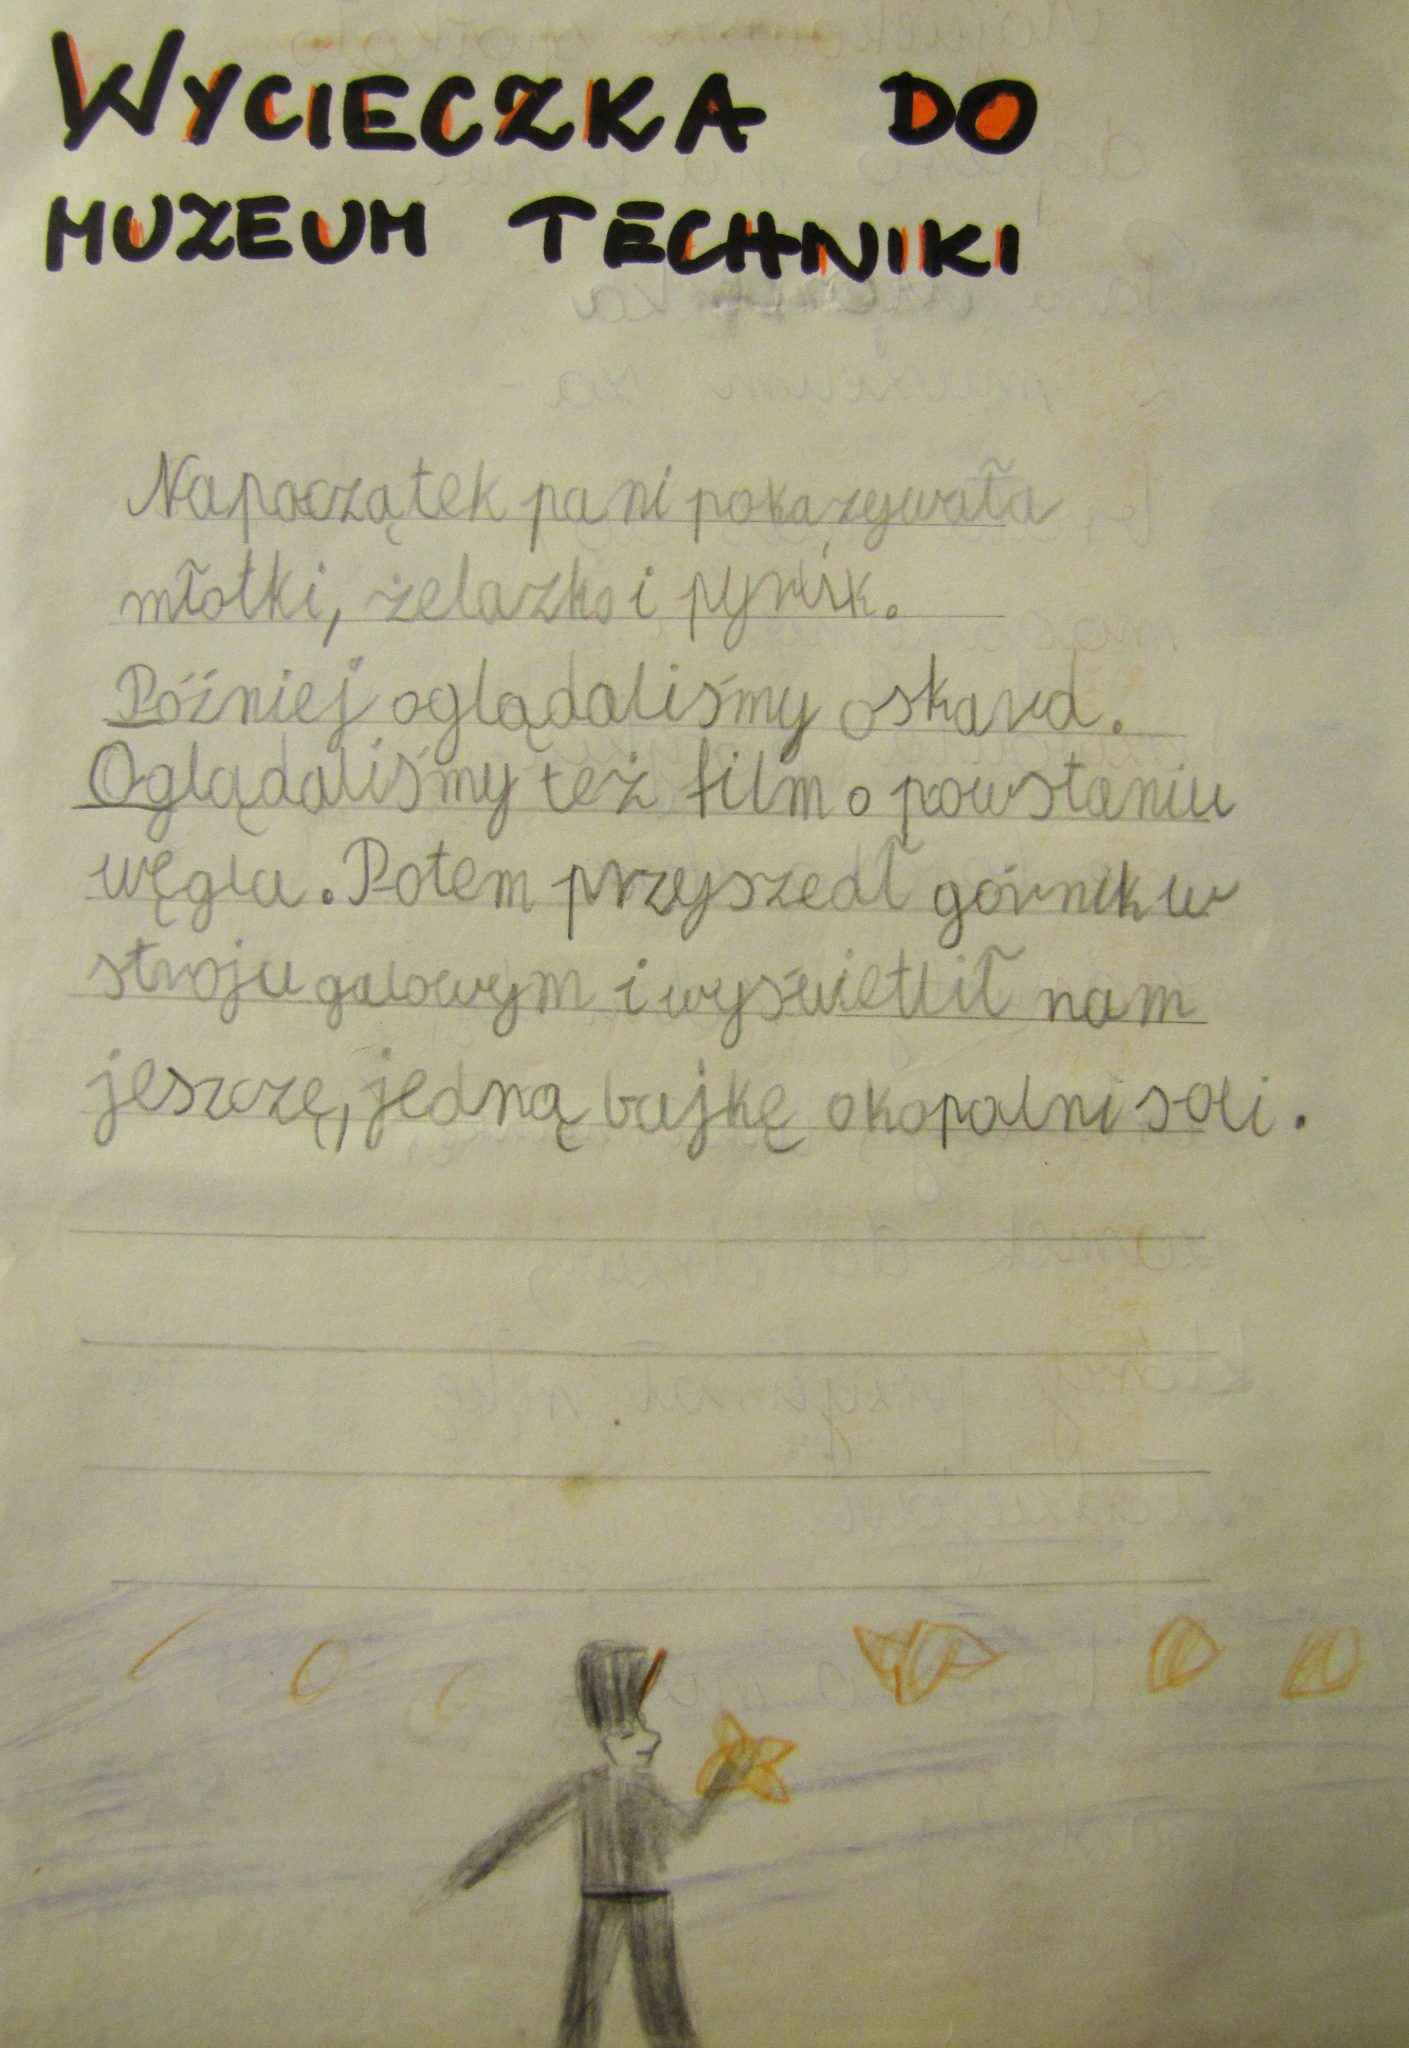 WYCIECZKA DO
MUZEUM TECHNIKI
Napoczątek pani pokazywała
młotki, żelazko i pyrlik.
Później oglądaliśmy oskard.
Oglądaliśmy też film o powstaniu
węgla. Potem przyjszedł górnik w
stroju galowym i wyświetlił nam
jeszczę, jedną bajkę okopalni soli.